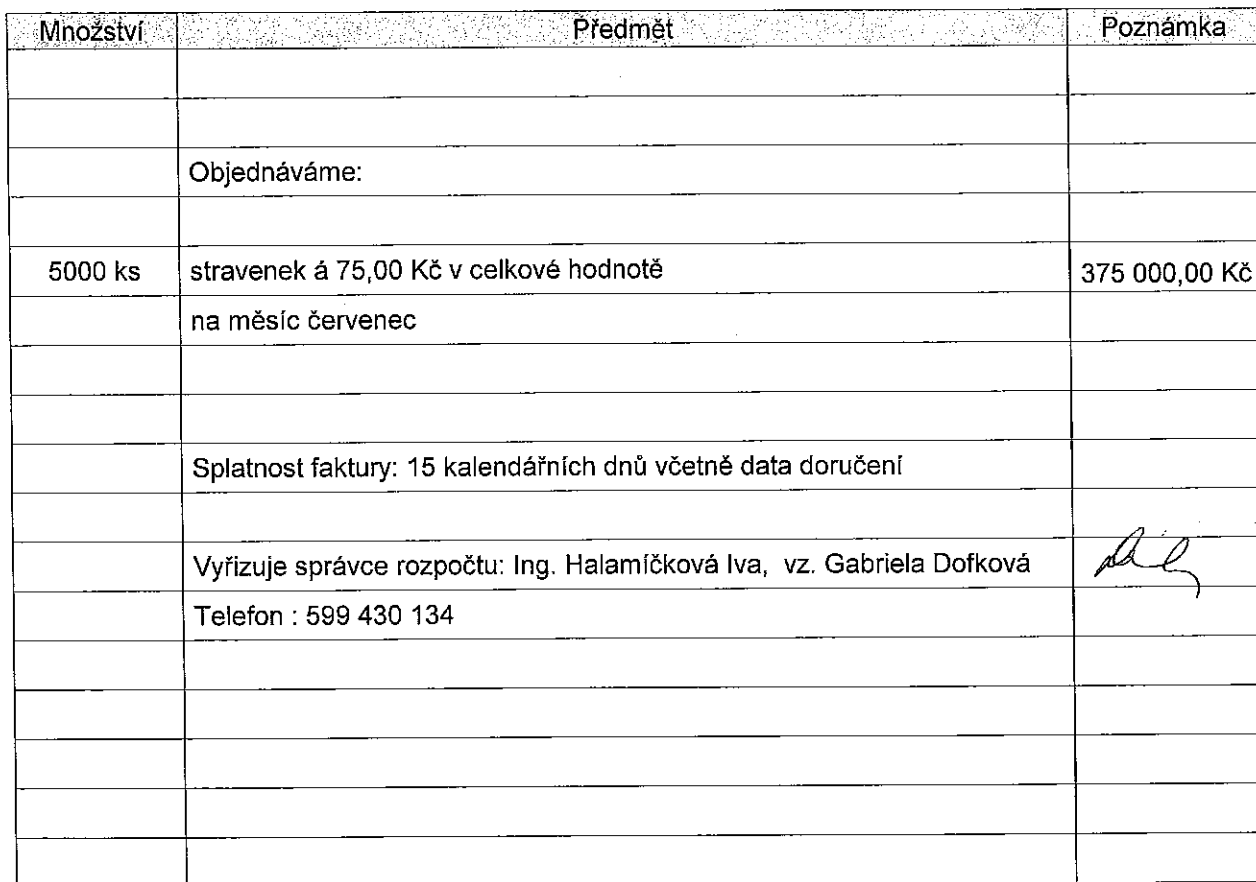 Množství Předmět Poznámka
Objednáváme:
5000 ks stravenek á 75,00 Kč v celkové hodnotě 375 000,00 Kč
na měsíc červenec
Splatnost faktury: 15 kalendářních dnů včetně data doručení
Vyřizuje správce rozpočtu: Ing. Halamíčková Iva, vz. Gabriela Dofková
Telefon : 599 430 134